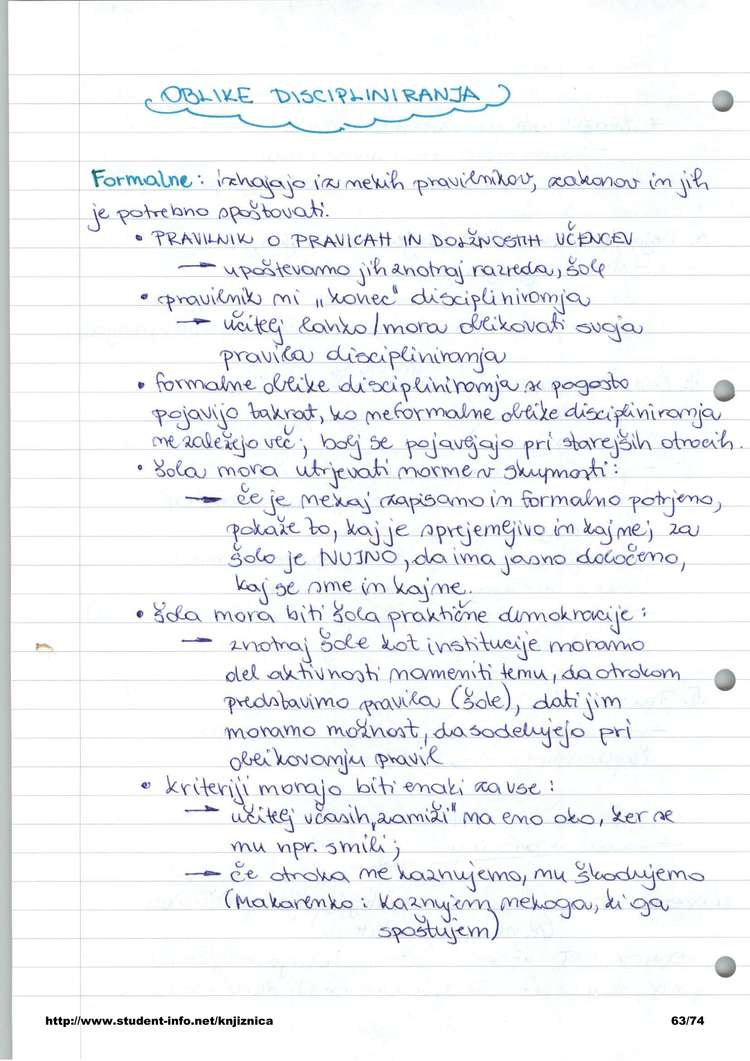 OBLIKE DISCIPLINIRANJA
Formalne: izhajajo iz nekih pravilnikov, zakonov in jih
je potrebno spoštovati.
• PRAVILNIK O PRAVICAH IN DOLŽNOSTIH UČENCEV
→ upoštevamo jih znotraj razreda, šole
• pravilnik ni „konec“ discipliniranja
→ učitelj lahko/mora oblikovati svoja
pravila discipliniranja
• formalne oblike discipliniranja se pogosto
pojavijo takrat, ko neformalne oblike discipliniranja
ne zaležejo več; bolj se pojavljajo pri starejših otrocih.
• šola mora utrjevati norme v skupnosti:
→ če je nekaj zapisano in formalno potrjeno,
pokaže to, kaj je sprejemljivo in kaj ne; za
šolo je NUJNO, da ima jasno določeno,
kaj se sme in kaj ne.
• šola mora biti šola praktične demokracije:
→ znotraj šole kot institucije moramo
del aktivnosti nameniti temu, da otrokom
predstavimo pravila (šole), dati jim
moramo možnost, da sodelujejo pri
oblikovanju pravil
• kriteriji morajo biti enaki za vse:
→ učitelj včasih „zamiži“ na eno oko, ker se
mu npr. smili;
→ če otroka ne kaznujemo, mu škodujemo
(Makarenko: kaznujem nekoga, ki ga
spoštujem)
http://www.student-info.net/knjiznica
63/74